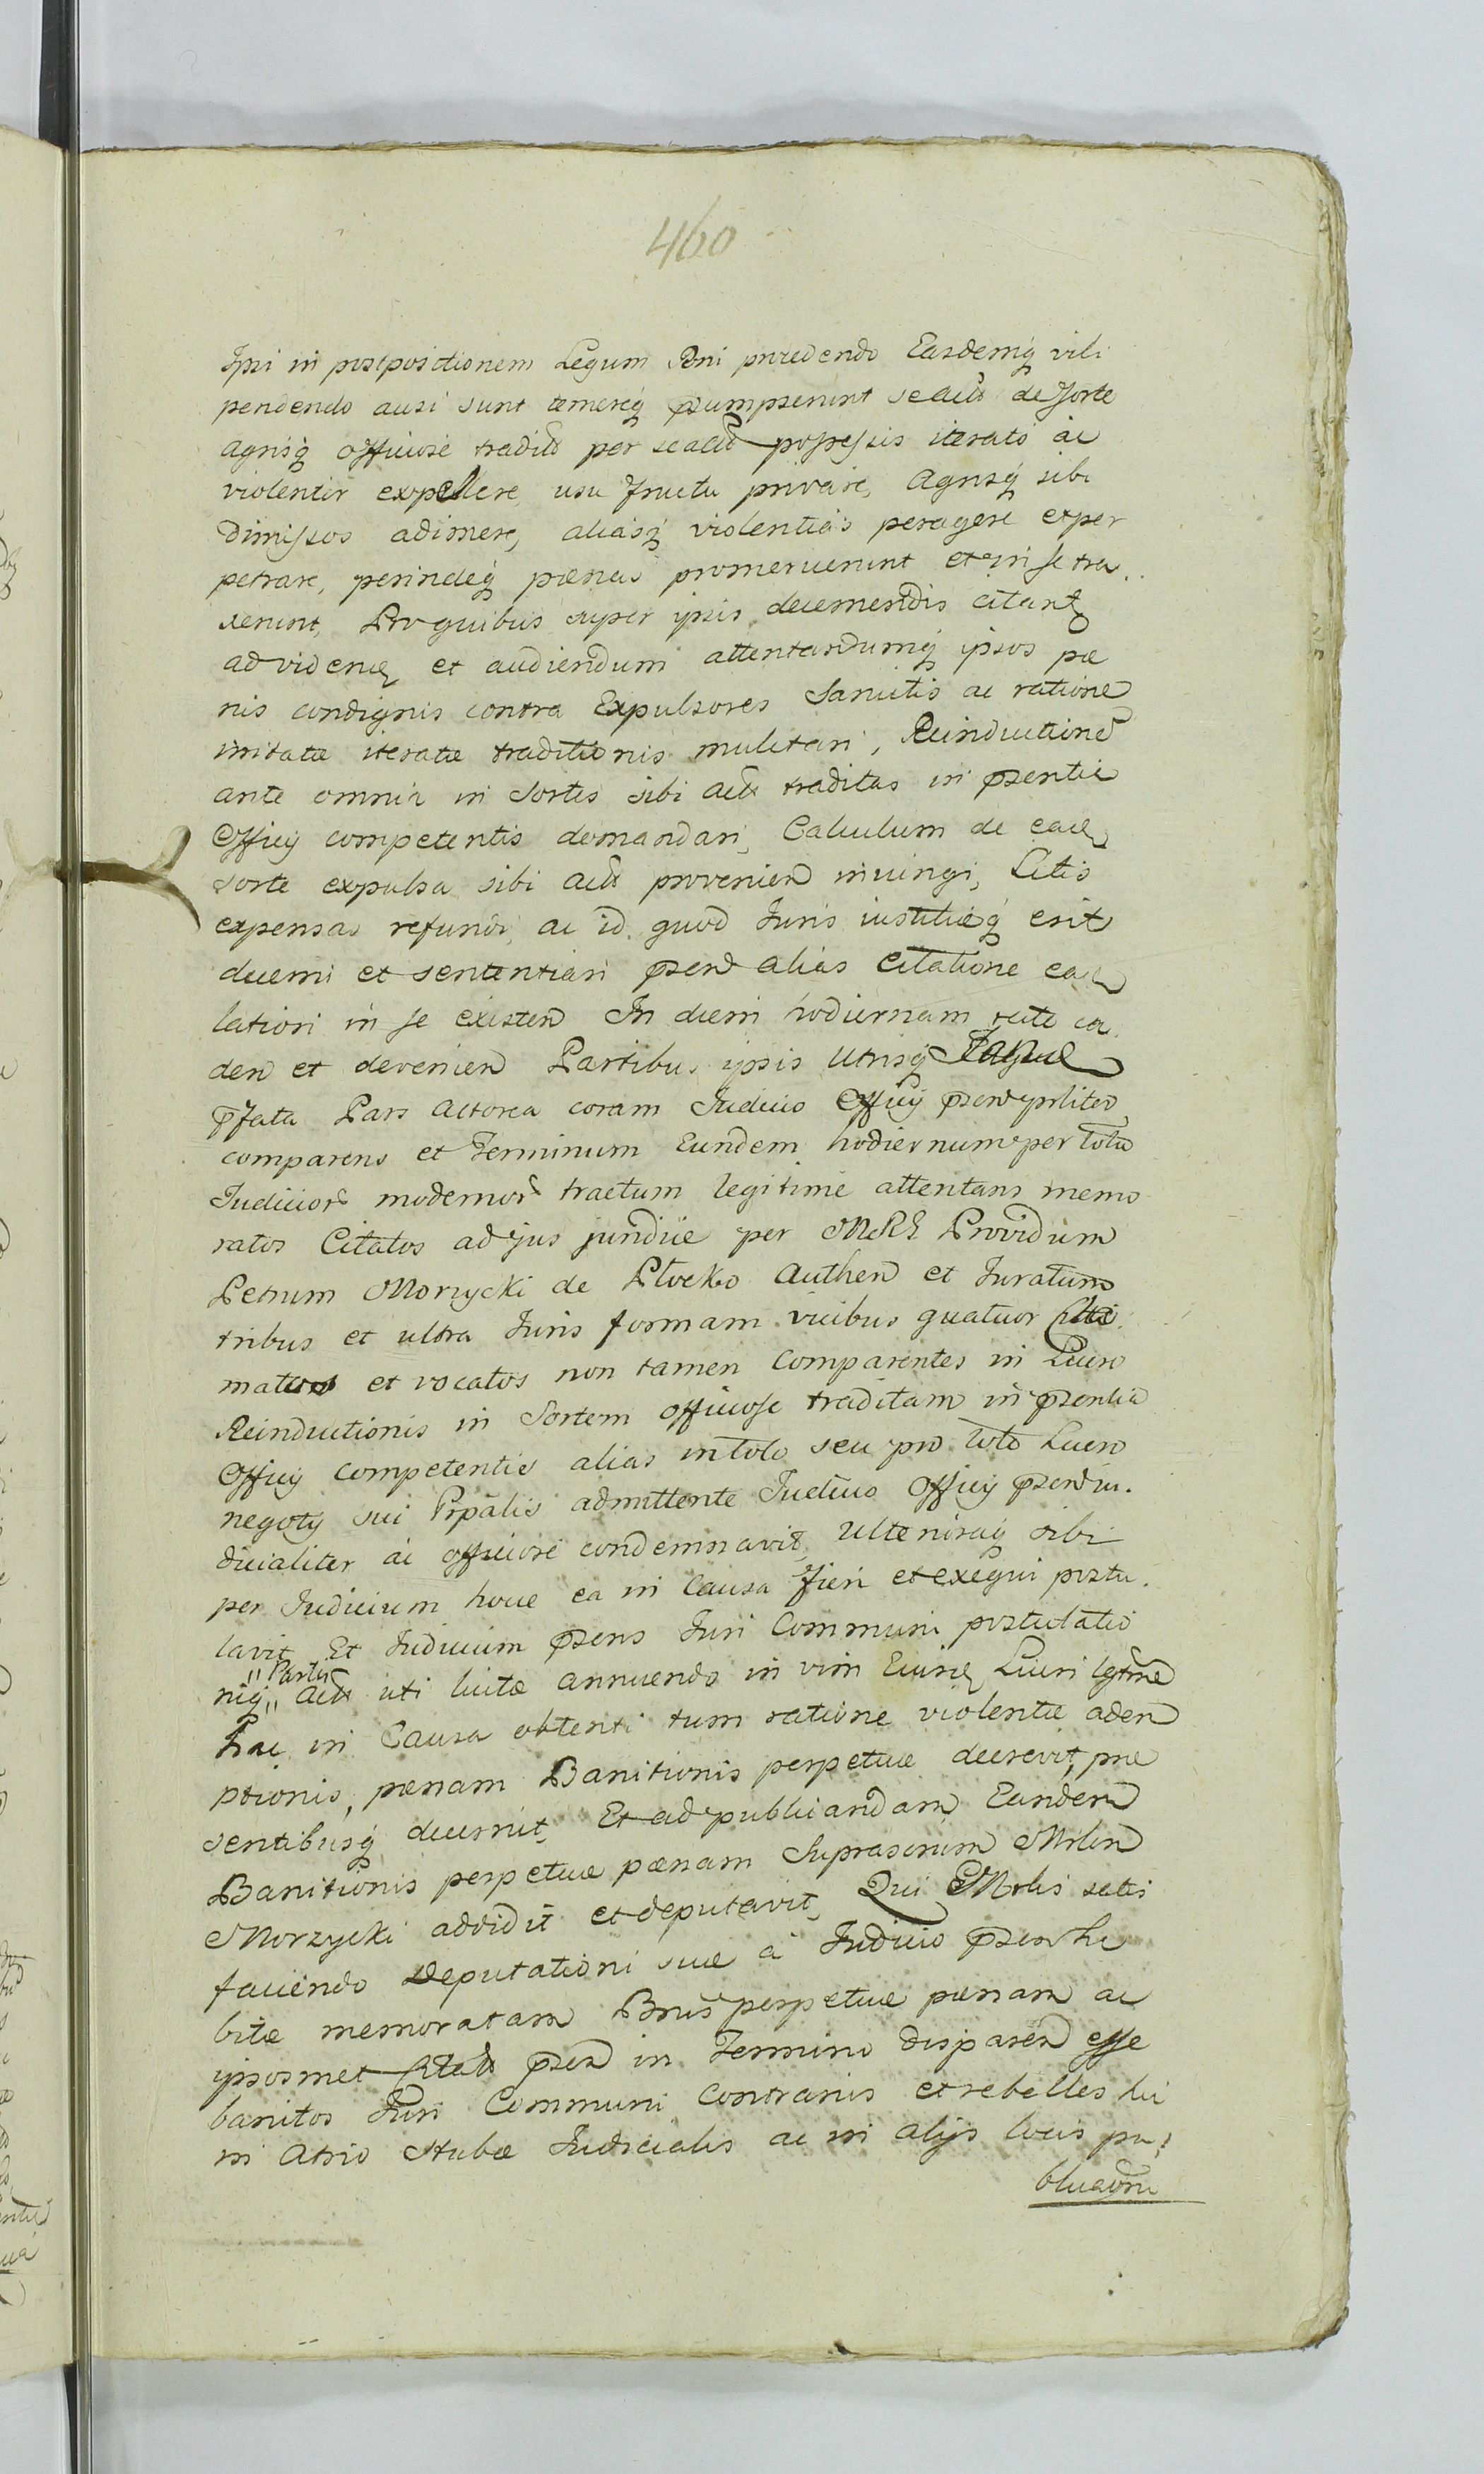 460
Ipsi in postpositionem Legum Rni prcedendo Easdemq vili
pendendo ausi sunt temereq psumpserunt seactis de sorte
agrisq officiose tradits per seacts possessis iterato ac
violenter expellere, usu fructu privare, Agrisq sibi
dimissos adimere, aliasq violentias peragere et per
petrare, perindeq pænas promeruerunt et in se tra
xerunt, Pro quibus super ipsis decernendis citant
ad videnq et audiendum attentandumq ipsos pæ
nis condignis contra Expulsores Sancitis ac ratione
irritatæ iteratæ traditionis mulctari, Reinductione
ante omnia in Sortes sibi acts traditas in psentia
Officij competentis demandari, Calculum de ead
sorte expulsa sibi acts provenien iniungi, Litis
expensas refundi, ac id quod Iuris iustitiæq erit
decerni et sententiari psen alias Citatione ead
latiori in se existen In diem hodiernam recte ca
den et devenien Partibus ipsis utrisq
pfata Pars Actorea coram Iudicio Officij psen psliter
comparens et Terminum Eundem hodiernum per totu
Iudicior modernor tractum legitime attentans memo
ratos Citatos ad jus juridice per MRE Providum
Petrum Morzycki de Plocko Authen et Iuratum
tribus et ultra Iuris formam vicibus quatuor
matos et vocatos non tamen comparentes in Lucro
Reinductionis in Sortem officiose traditam in psentia
Officij competentis alias in toto seu pro toto Lucro
negotij sui Prpalis admittente Iudicio Officij psen iu
dicialiter ac officiose condemnavit, Ulteriusq sibi
per Iudicium hocce ea in Causa fieri et exequi postu
lavit Et Iudicium psens Iuri Communi postulatio
niq "Partis" acts uti licitæ annuendo in vim Eiusd Lucri lgtme
hac in Causa obtenti tum ratione violentæ adem
ptionis, pænam Banitionis perpetuæ decrevit, præ
sentibusq decernit, Et ad publicandam Eandem
Banitionis perpetuæ pænam Suprascrium Mrlem
Morzycki addidit et deputavit, Qui Mrlis satis
faciendo deputationi suæ a Iudicio psen ha
bitæ memoratam Bnis perpetuæ pænam ac
ipsosmet Citats psen in Termino disparen esse
banitos Iuri Communi contrarios et rebelles hic
in Atrio Stubæ Iudicialis ac in alijs locis pu
blicavit